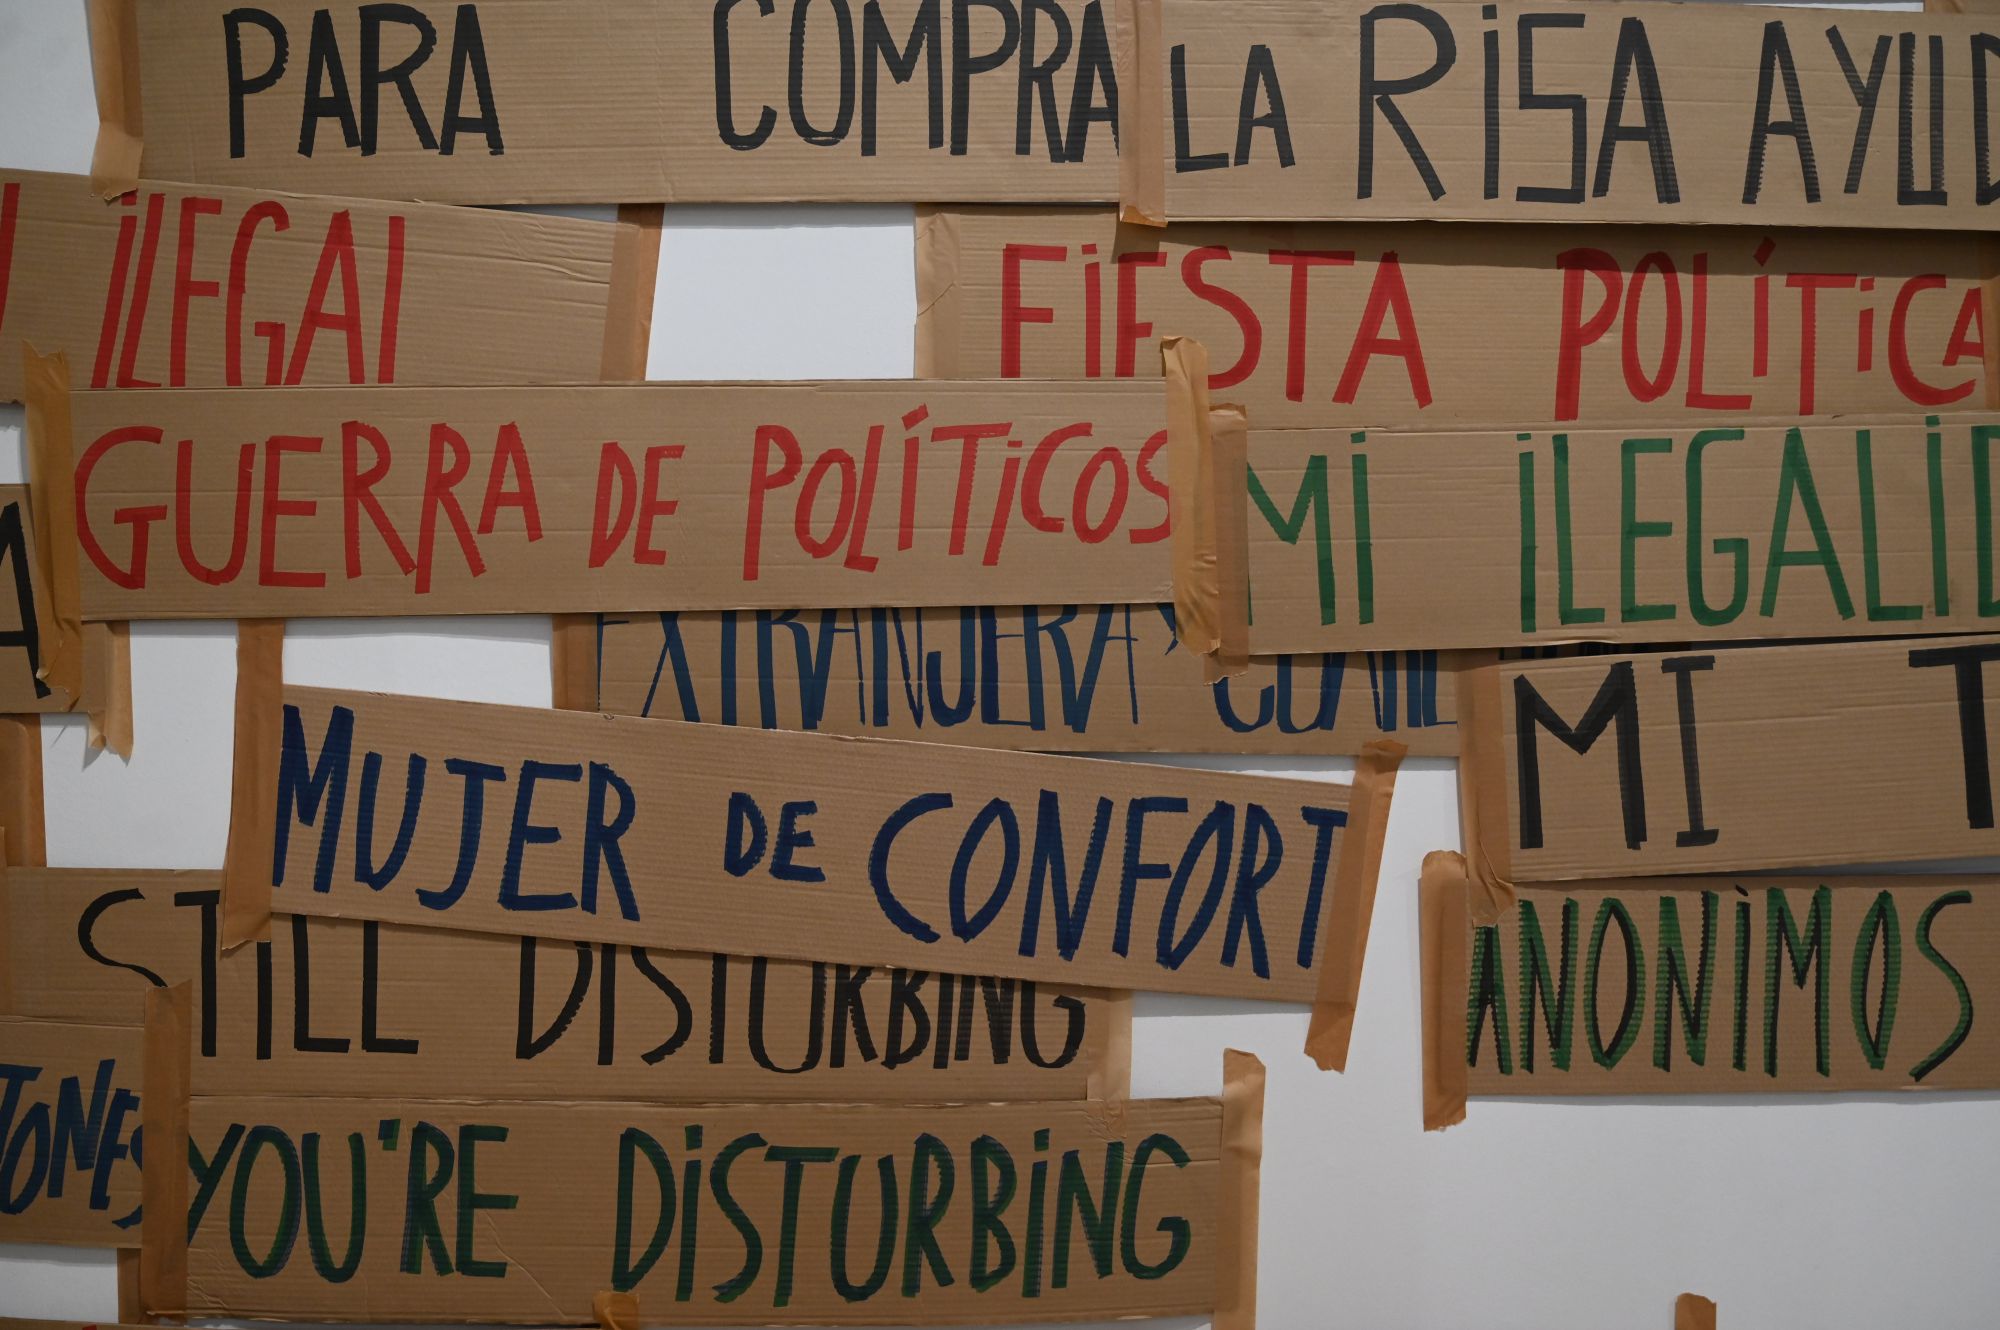 PARA COMPRA
LA RISA AYUD
ILEGAL
FIESTA POLÍTICA
GUERRA DE POLÍTICOS
MI ILEGALID
EXTRANJERA
MI T
MUJER DE CONFORT
ANONIMOS
STILL DISTURBING
TONES
YOU'RE DISTURBING